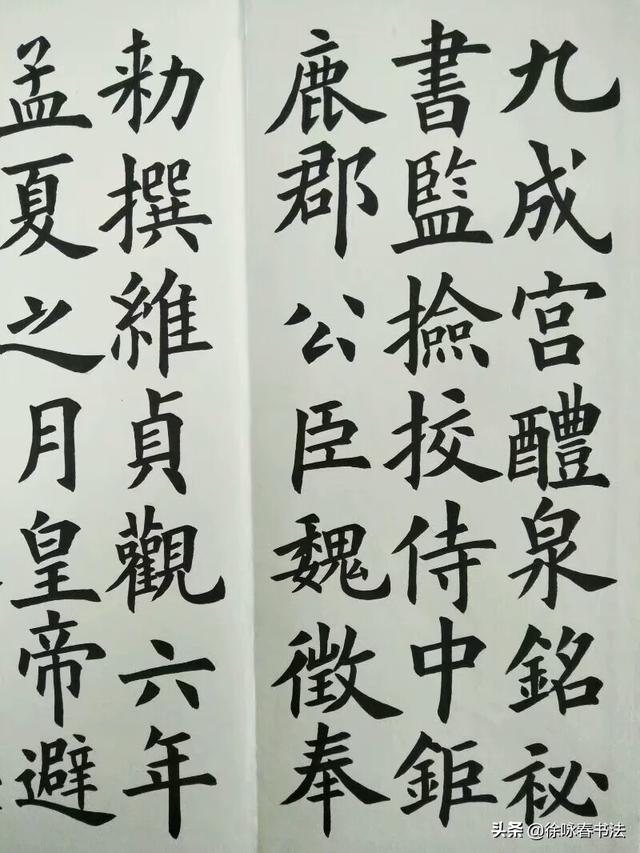 九成宮醴泉銘祕
書監撿挍侍中鉅
鹿郡公臣魏徵奉
勑撰維貞觀六年
孟夏之月皇帝避
头条 @徐咏春书法